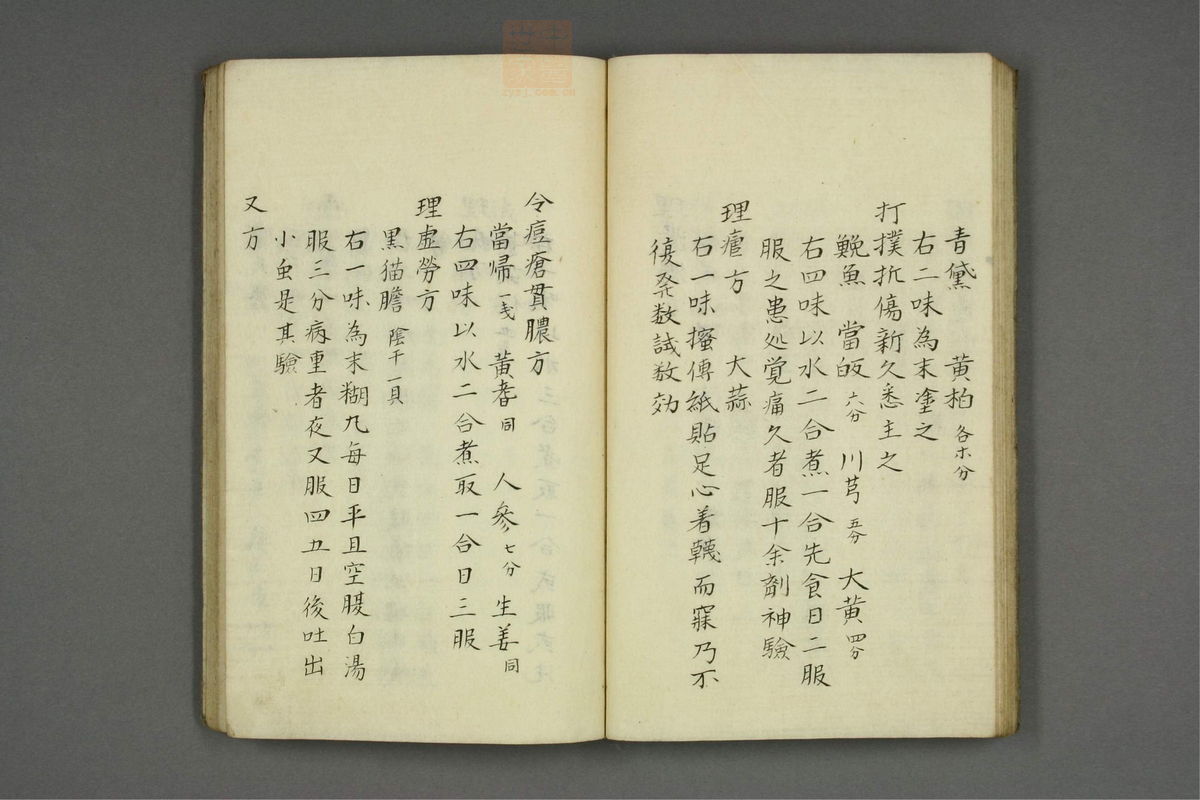 青黛 黄柏各木分
右二味為末塗之
打撲折傷新久悉主之
鮸魚 當皈六分 川芎五分 大黄四分
右四味以水二合煮一合先食日二服
服之患処覚痛久者服十余劑神驗
理瘧方 大蒜
右一味搗傅紙貼足心着韈而寐乃不
復発数試数効
令痘瘡貫膿方
當帰一戋 黄耆同 人參七分 生姜同
右四味以水二合煮取一合日三服
理虚勞方
黒猫膽陰干一具
右一味為末糊丸每日平旦空腹白湯
服三分病重者夜又服四五日後吐出
小虫是其驗
又方
zysj.com.cn